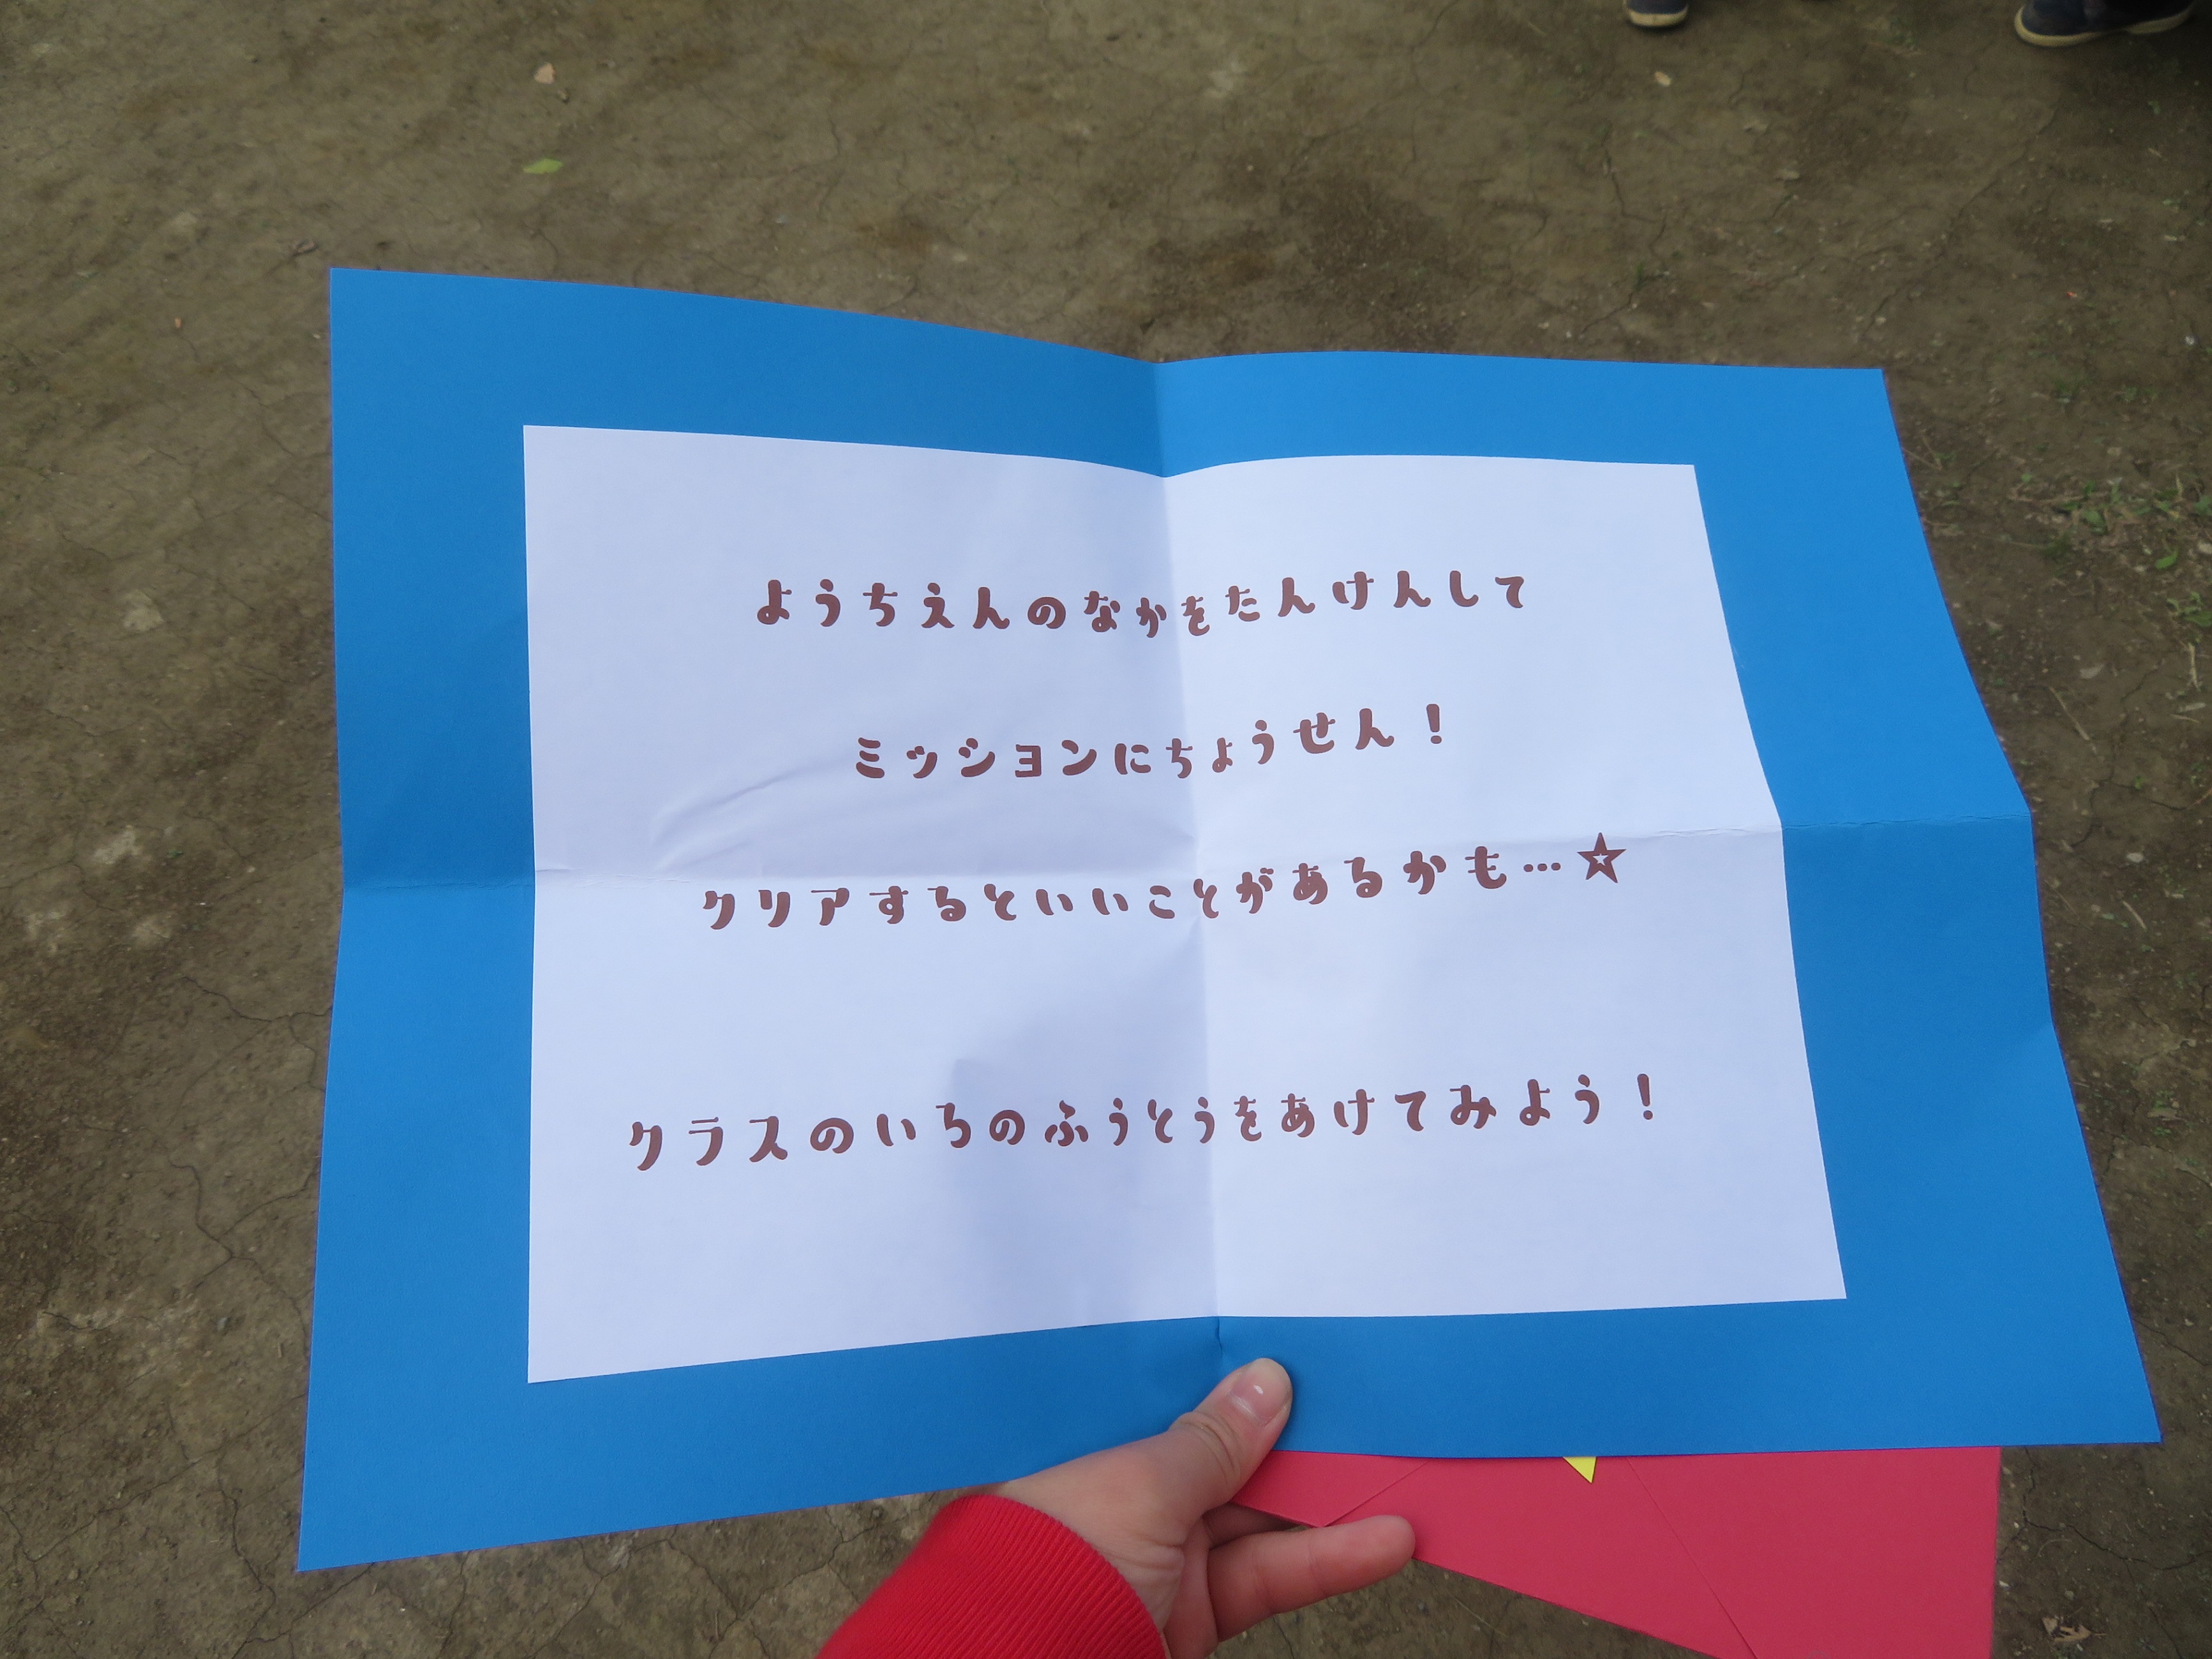 ようちえんのなかをたんけんして
ミッションにちょうせん！
クリアするといいことがあるかも…☆
クラスのいろのふうとうをあけてみよう！